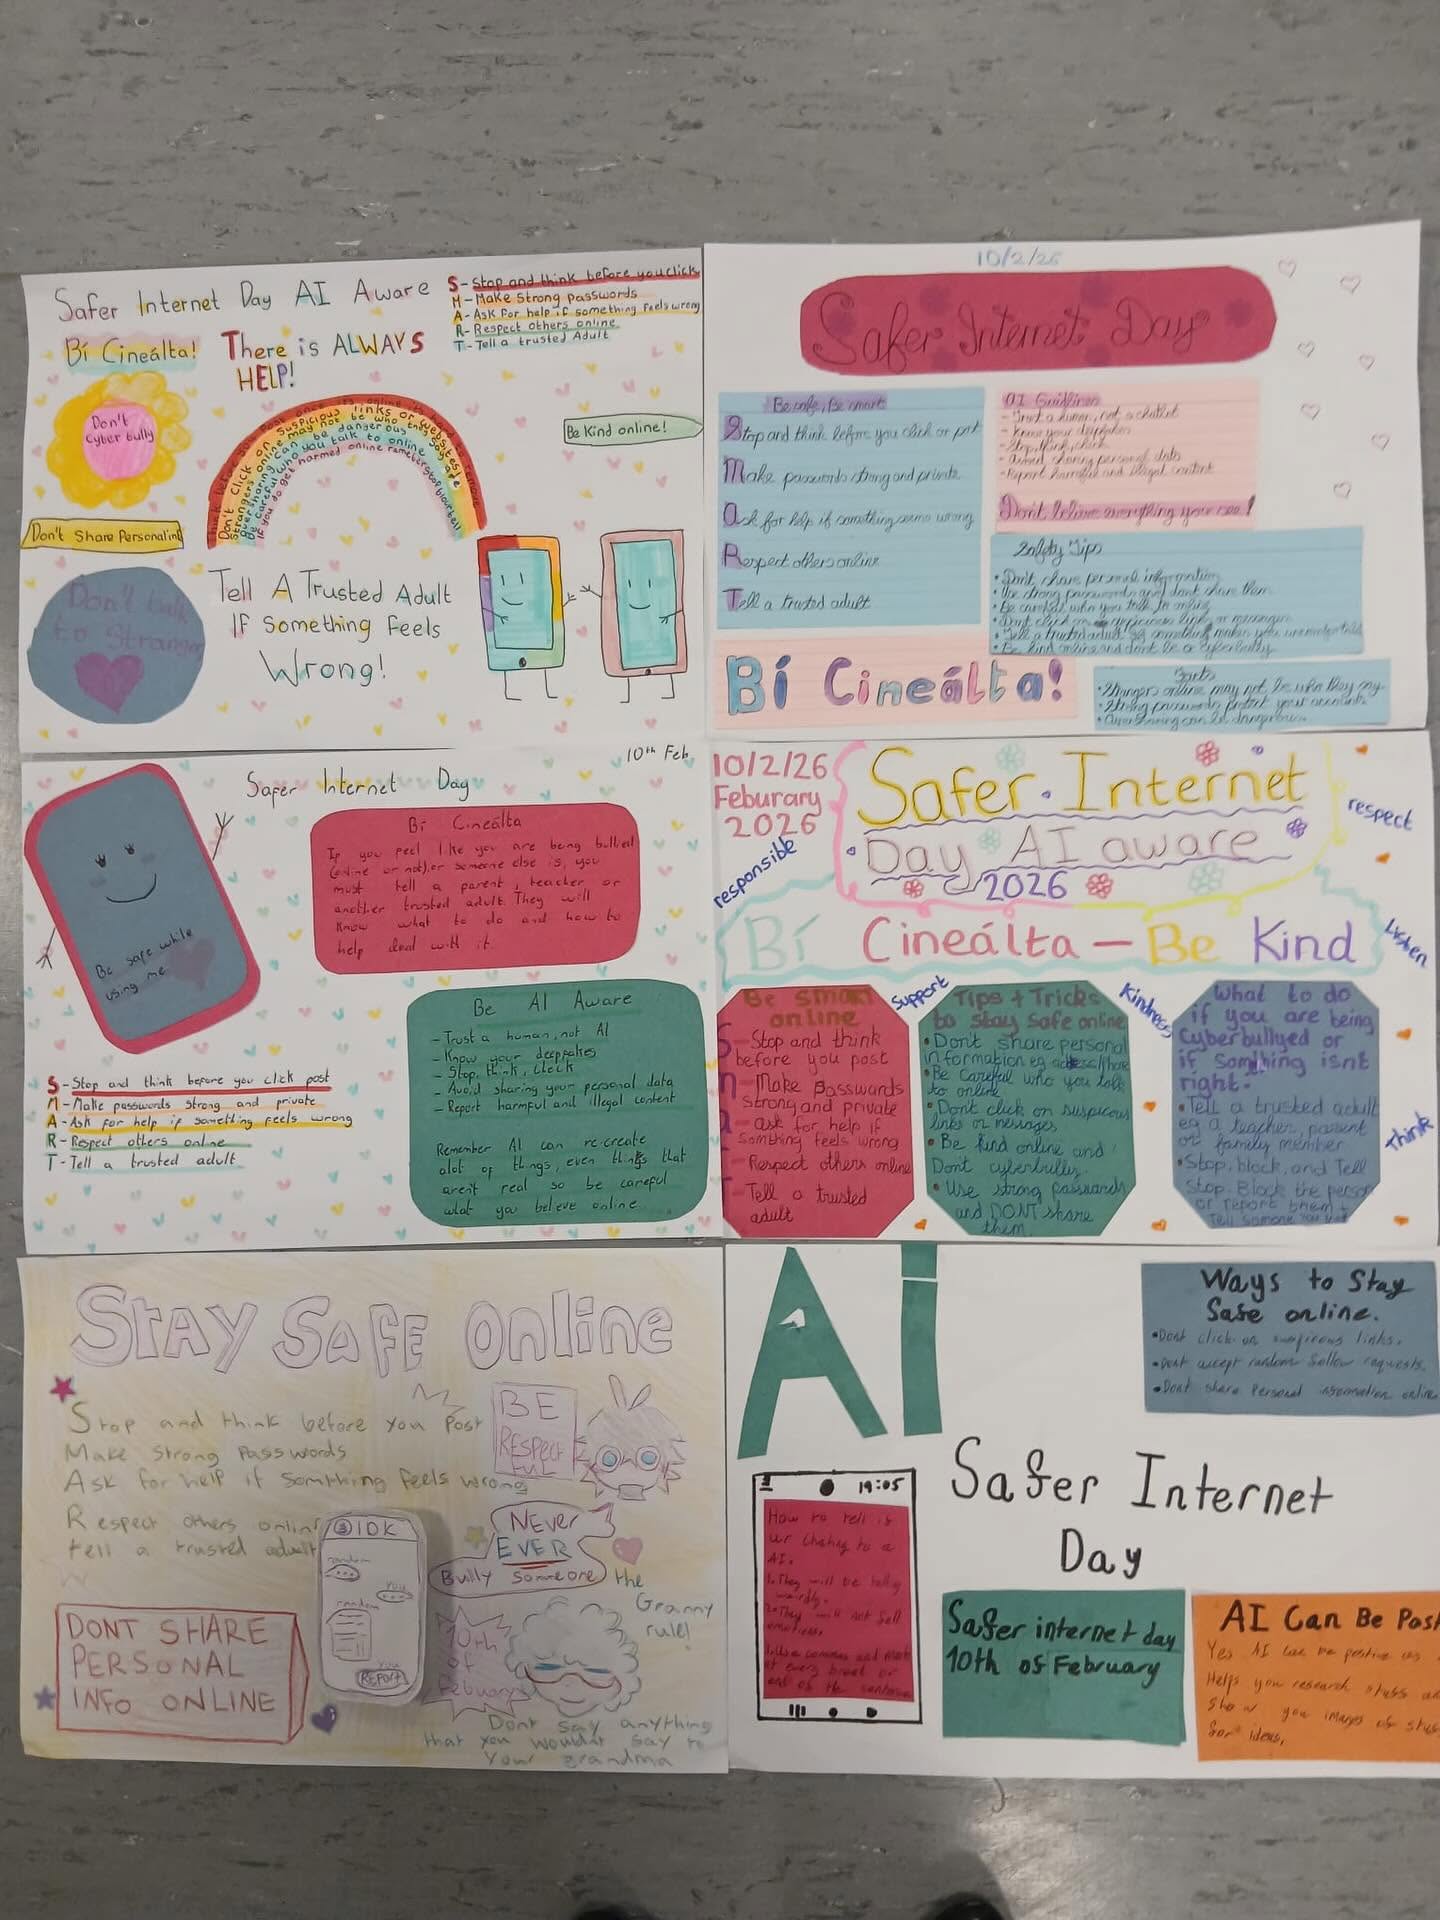 Safer Internet Day AI Aware
Bí Cineálta!
There is ALWAYS
HELP!
S- Stop and think before you click
M- Make Strong passwords
A- Ask for help if something feels wrong
R- Respect others online
T- Tell a trusted Adult
Don't
Cyber bully
Be Kind online!
Don't Share Personal inf
Don't talk
to Stranger
Tell A Trusted Adult
If Something Feels
Wrong!
10/2/26
Safer Internet Day
Be safe, Be smart
Stop and think before you click or post
Make passwords strong and private
Ask for help if something seems wrong
Respect others online
Tell a trusted adult
AI Guidlines
- Trust a human, not a chatbot
- Know your deepfakes
- Stop, think, check
- Avoid sharing personal data
- Report harmful and illegal content
Don't believe everything your see!
Bí Cineálta!
Safety Tips
• Don't share personal information
• Use strong passwords and dont share them
• Be careful who you talk to online
• Be kind online and dont be a cyberbully
Facts
• Strangers online may not be who they say
• Strong passwords protect your accounts
• Oversharing can be dangerous
10th Feb
Safer Internet Day
Be safe while
using me
Bí Cineálta
If you feel like you are being bullied
(online or not) or someone else is, you
must tell a parent, teacher or
another trusted adult. They will
know what to do and how to
help deal with it.
Be AI Aware
- Trust a human, not AI
- Know your deepfakes
- Stop, think, check
- Avoid sharing your personal data
- Report harmful and illegal content
Remember AI can re-create
alot of things, even things that
aren't real so be careful
what you believe online
S- Stop and think before you click post
M- Make passwords strong and private
A- Ask for help if something feels wrong
R- Respect others online
T- Tell a trusted adult
10/2/26
Feburary
2026
Safer Internet
Day AI aware
2026
responsible
respect
Bí Cineálta – Be Kind
Listen
Support
Kindness
Think
Be smart
online
S- Stop and think
before you post
m- Make passwards
strong and private
a- ask for help if
somthing feels wrong
- Respect others online
T- Tell a trusted
adult
Tips + Tricks
to stay safe online
• Don't share personal
information eg
• Be Careful who you talk
to online
• Don't click on suspicous
links or messages
• Be kind online and
Dont cyberbully.
• Use strong passwards
and DONT share
them.
What to do
if you are being
Cyberbullyed or
if somthing isnt
right:
• Tell a trusted adult
eg a teacher, parent
or family member
• Stop, block, and Tell
Stop. Block the person
or report them +
Tell someone
STAY SAFE Online
Stop and think before you post
Make strong passwords
Ask for help if somthing feels wrong
Respect others online
tell a trusted adult
BE
RESPECT
FUL
IDK
random
you
random
you
REPORT
NEVER
EVER
Bully someone
the
Granny
rule!
DONT SHARE
PERSONAL
INFO ONLINE
10th
of
Febuary
Dont say anything
that you wouldnt say to
your grandma
AI
Ways to Stay
Safe online.
• Dont click on suspicous links.
• Dont accept random follow requests.
• Dont share Personal information online
19:05
How to tell if
ur chating to a
AI.
1. They will be talking
weirdly.
2. They will not sell
emotions.
Safer Internet
Day
Safer internet day
10th of February
AI Can Be Posi
Yes AI can be positive
Helps you research stuff
Show you images of stuff
for ideas.